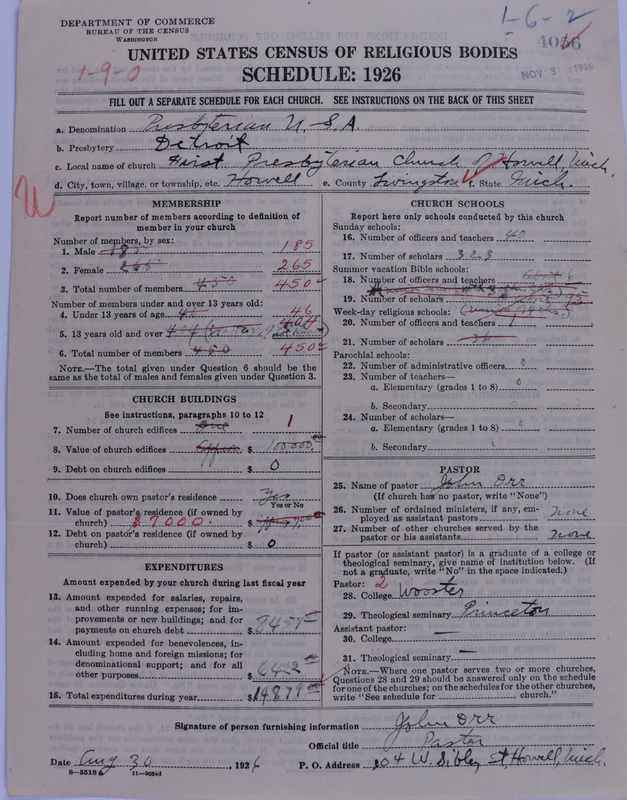 DEPARTMENT OF COMMERCE
BUREAU OF THE CENSUS
WASHINGTON
1-6-2
4056
NOV 3 1926
1-9-0
UNITED STATES CENSUS OF RELIGIOUS BODIES
SCHEDULE: 1926
FILL OUT A SEPARATE SCHEDULE FOR EACH CHURCH. SEE INSTRUCTIONS ON THE BACK OF THIS SHEET
a. Denomination Presbyterian U.S.A.
b. Presbytery Detroit
c. Local name of church First Presbyterian Church of Howell, Mich.
d. City, town, village, or township, etc. Howell e. County Livingston f. State Mich.
MEMBERSHIP
Report number of members according to definition of
member in your church
Number of members, by sex:
1. Male 185 185
2. Female 265 265
3. Total number of members 450 450
Number of members under and over 13 years old:
4. Under 13 years of age 46 46
5. 13 years old and over 404 404
6. Total number of members 450 450
NOTE.—The total given under Question 6 should be
the same as the total of males and females given under Question 3.
CHURCH BUILDINGS
See instructions, paragraphs 10 to 12
7. Number of church edifices One 1
8. Value of church edifices $ 100,000
9. Debt on church edifices $ 0
10. Does church own pastor's residence Yes
Yes or No
11. Value of pastor's residence (if owned by
church) $7000. $
12. Debt on pastor's residence (if owned by
church) $ 0
EXPENDITURES
Amount expended by your church during last fiscal year
13. Amount expended for salaries, repairs,
and other running expenses; for im-
provements or new buildings; and for
payments on church debt $ 8457
14. Amount expended for benevolences, in-
cluding home and foreign missions; for
denominational support; and for all
other purposes $ 6422
15. Total expenditures during year $ 14879
CHURCH SCHOOLS
Report here only schools conducted by this church
Sunday schools:
16. Number of officers and teachers 40
17. Number of scholars 323
Summer vacation Bible schools:
18. Number of officers and teachers
19. Number of scholars
Week-day religious schools:
20. Number of officers and teachers
21. Number of scholars
Parochial schools:
22. Number of administrative officers 0
23. Number of teachers—
a. Elementary (grades 1 to 8) 0
b. Secondary
24. Number of scholars—
a. Elementary (grades 1 to 8) 0
b. Secondary
PASTOR
25. Name of pastor John Orr
(If church has no pastor, write "None")
26. Number of ordained ministers, if any, em-
ployed as assistant pastors none
27. Number of other churches served by the
pastor or his assistants none
If pastor (or assistant pastor) is a graduate of a college or
theological seminary, give name of institution below. (If
not a graduate, write "No" in the space indicated.)
Pastor: 2
28. College Wooster
29. Theological seminary Princeton
Assistant pastor:
30. College —
31. Theological seminary —
NOTE.—Where one pastor serves two or more churches,
Questions 28 and 29 should be answered only on the schedule
for one of the churches; on the schedules for the other churches,
write "See schedule for church."
Signature of person furnishing information John Orr
Official title Pastor
Date Aug 30, 1926 P. O. Address 304 W. Sibley St, Howell, Mich.
8-5518a 11-9054d